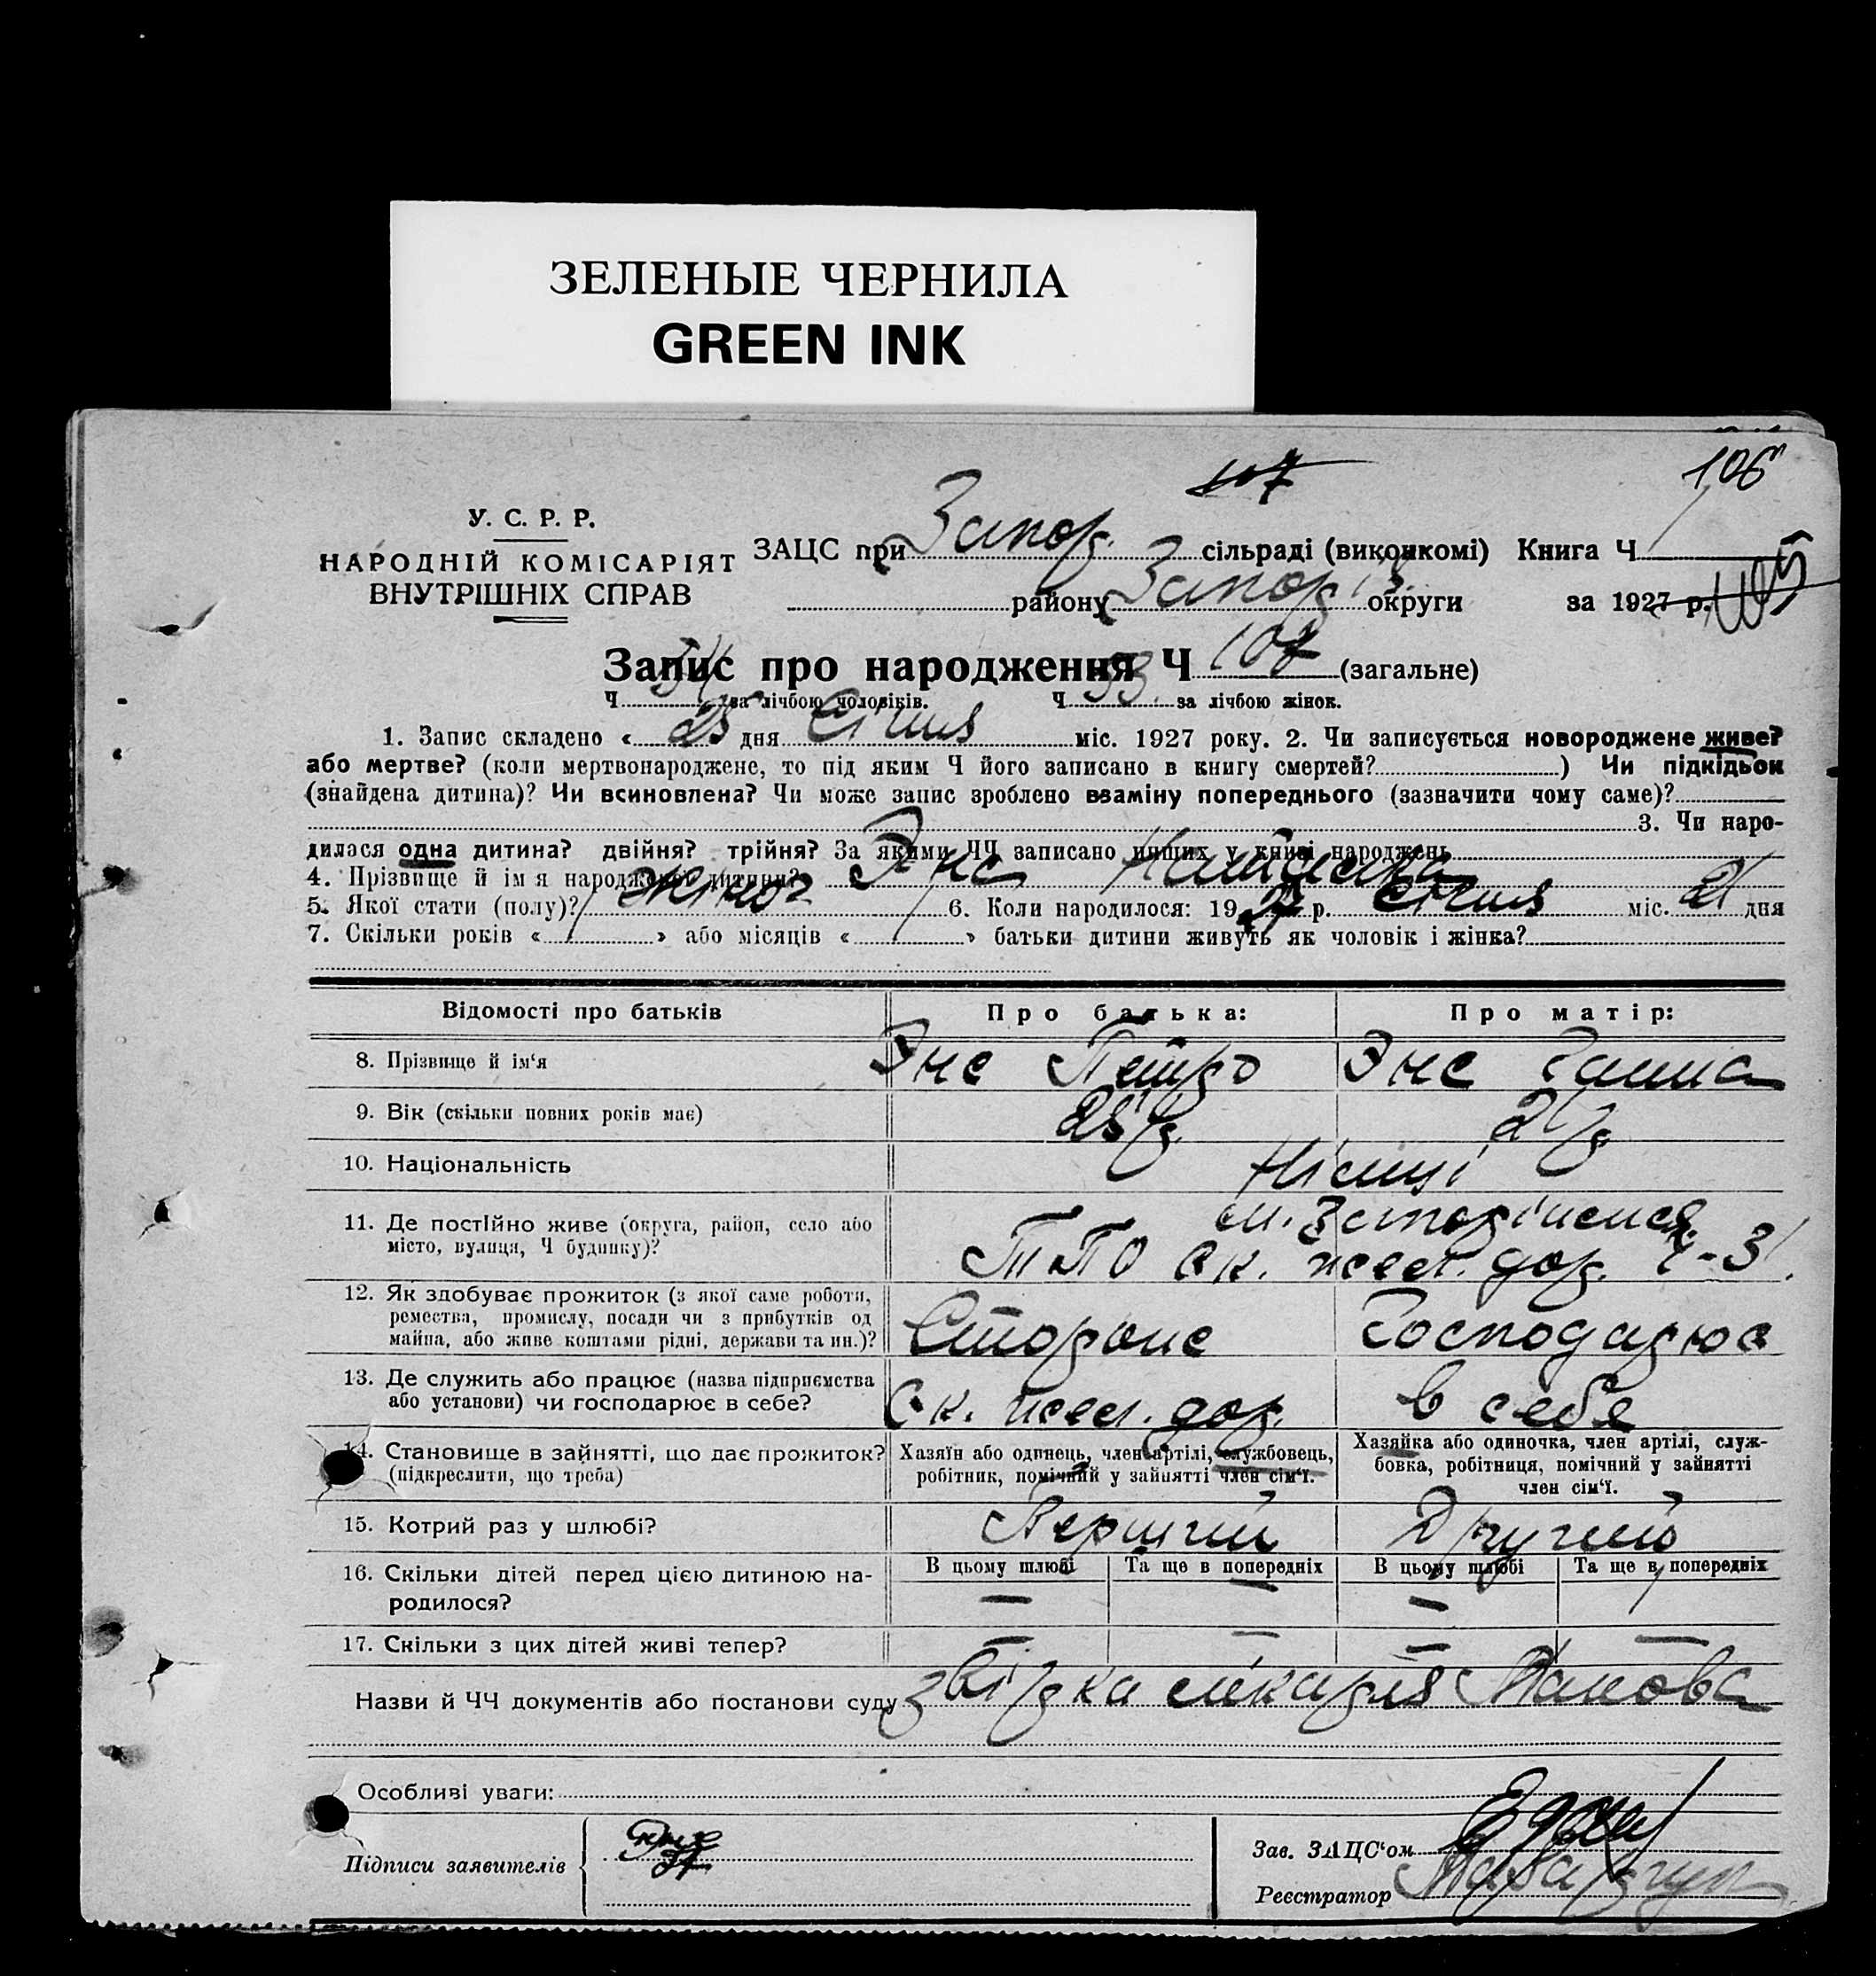 ЗЕЛЕНЫЕ ЧЕРНИЛА
GREEN INK
107
106
У. С. Р. Р.
НАРОДНІЙ КОМІСАРІЯТ
ВНУТРІШНІХ СПРАВ
ЗАЦС при Запор. сільраді (виконкомі) Книга Ч
району Запоріз. округи за 1927 р.
Запис про народження Ч 107 (загальне)
Ч 54 за лічбою чоловіків. Ч 53. за лічбою жінок.
1. Запис складено « 25 дня Січня міс. 1927 року. 2. Чи записується новороджене живе?
або мертве? (коли мертвонароджене, то під яким Ч його записано в книгу смертей? ) Чи підкідьок
(знайдена дитина)? Чи всиновлена? Чи може запис зроблено взаміну попереднього (зазначити чому саме)?
3. Чи наро-
дилася одна дитина? двійня? трійня? За якими ЧЧ записано инших у книзі народжень
4. Прізвище й ім'я народженої дитини? Энс
5. Якої стати (полу)? жіноч 6. Коли народилося: 1927 р. січня міс. 21 дня
7. Скільки років « » або місяців « » батьки дитини живуть як чоловік і жінка?
Відомості про батьків Про батька: Про матір:
8. Прізвище й ім'я Энс Петро Энс Ганна
9. Вік (скільки повних років має) 25 р. 21 р.
10. Національність Німці
11. Де постІйно живе (округа, район, село або
місто, вулиця, Ч будинку)?
м. Запоріжжя
ТПО Ек. жел. дор. Ч-3
12. Як здобуває прожиток (з якої саме роботи,
ремества, промислу, посади чи з прибутків од
майна, або живе коштами рідні, держави та ин.)?
Сторож Господарює
13. Де служить або працює (назва підприємства
або установи) чи господарює в себе?
Ек. жел. дор. в себе
14. Становище в зайнятті, що дає прожиток?
(підкреслити, що треба)
Хазяїн або одинець, член артілі, службовець,
робітник, помічний у зайнятті член сім'ї.
Хазяйка або одиночка, член артілі, служ-
бовка, робітниця, помічний у зайнятті
член сім'ї.
15. Котрий раз у шлюбі? Перший Другий
16. Скільки дітей перед цією дитиною на-
родилося?
В цьому шлюбі Та ще в попередніх В цьому шлюбі Та ще в попередніх
— — —
17. Скільки з цих дітей живі тепер? — — — —
Назви й ЧЧ документів або постанови суду звірка лікаря
Особливі уваги:
Підписи заявителів
Зав. ЗАЦС'ом
Реєстратор